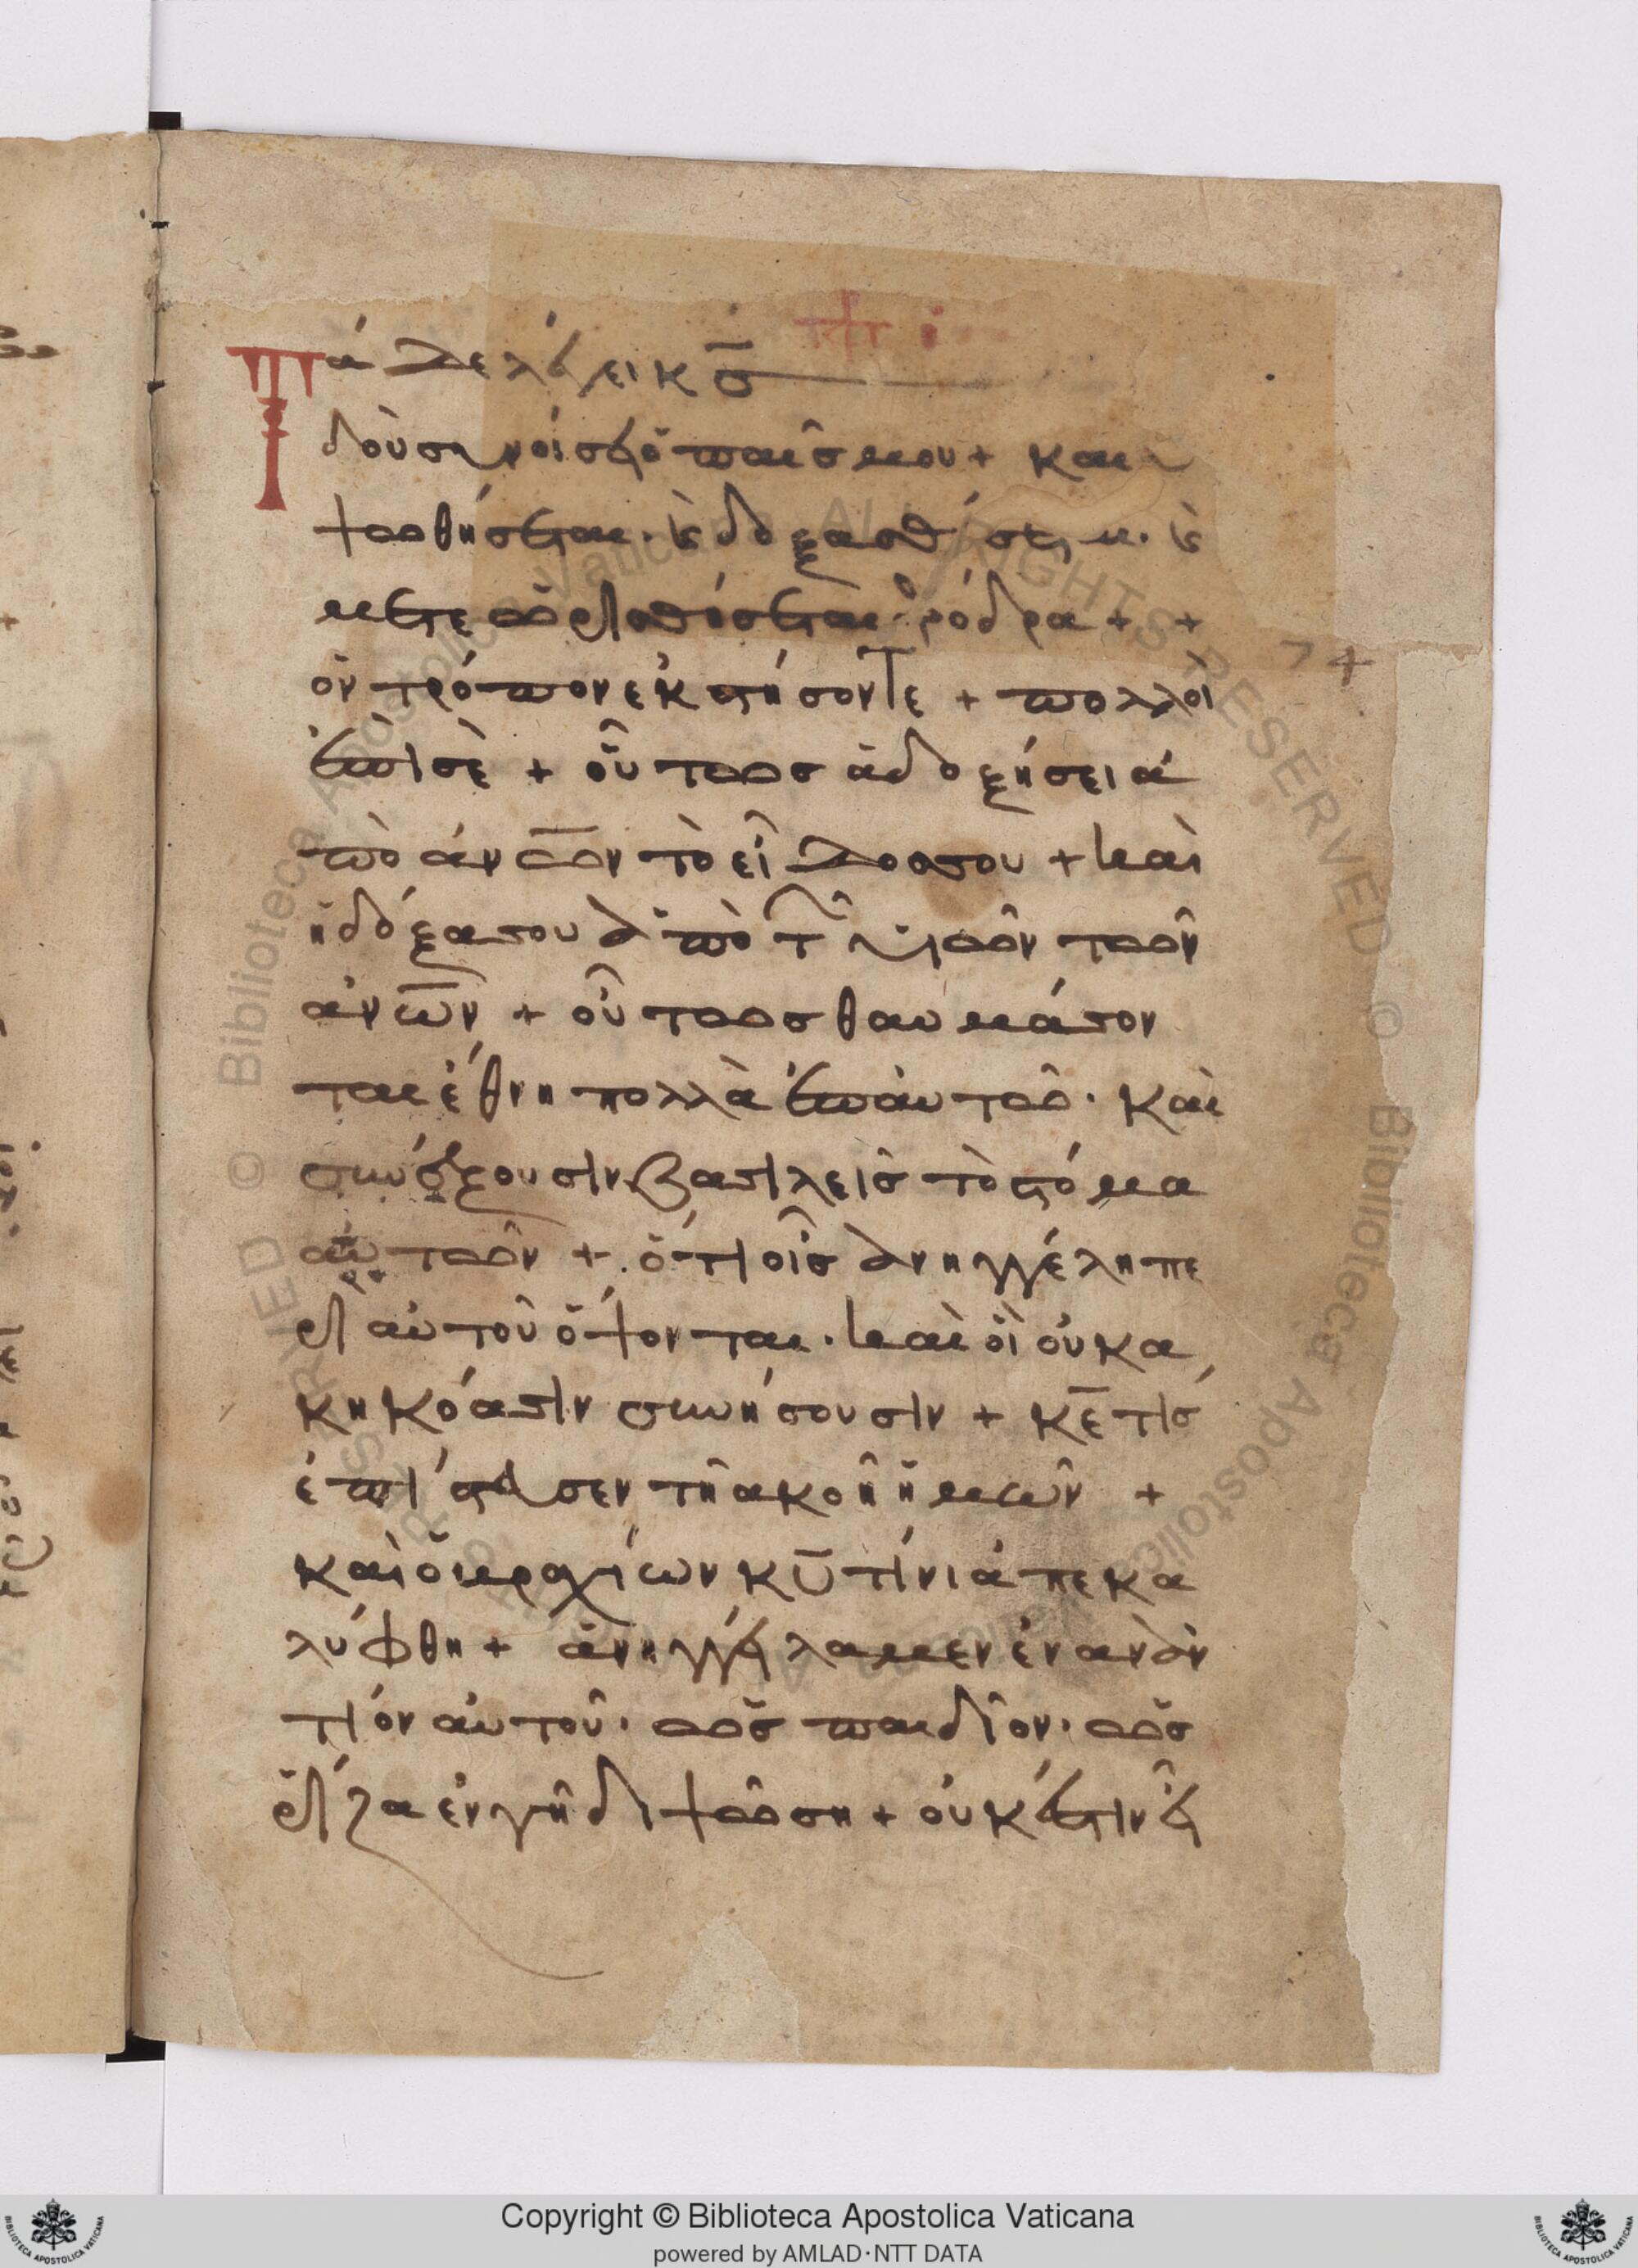 Τάδε λέγει κ̅ς̅
δοὺ συνοίσει ὁ παῖς μου + καὶ ὑ
ψωθήσεται · κ(αὶ) δοξασθήσεται · κ(αὶ)
μετεωρισθήσεται σφόδρα + +
ὃν τρόπον ἐκστήσοντε + πολλοὶ
ἐπὶ σὲ + οὕτως ἀδοξήσει ἀ
πὸ ἀν̅ω̅ν τὸ εἶδος σου + καὶ
ἡ δόξα σου ἀπὸ τ(ῶν) υἱῶν τῶν
ἀν̅ω̅ν + οὕτως θαυμάσον
ται ἔθνη πολλὰ ἐπ αὐτῶ · καὶ
συνέξουσιν βασιλεῖς τὸ στόμα
αὐτῶν + ὅτι οἷς ἀνηγγέλη πε
ρὶ αὐτοῦ ὄψονται · καὶ οἳ οὐκ ἀ
κηκόασιν συνήσουσιν + κ̅ε̅ τίς
ἐπίστευσεν τῆ ἀκοῆ ἡμῶν +
καὶ ὁ βραχίων κ̅υ̅ τίνι ἀπεκα
λύφθη + ἀνηγγείλαμεν ἐναν
τίον αὐτοῦ · ὡς παιδίον · ὡς
ρίζα ἐν γῆ διψώση + οὐκ ἔστιν εἶ
74
Copyright © Biblioteca Apostolica Vaticana
powered by AMLAD·NTT DATA